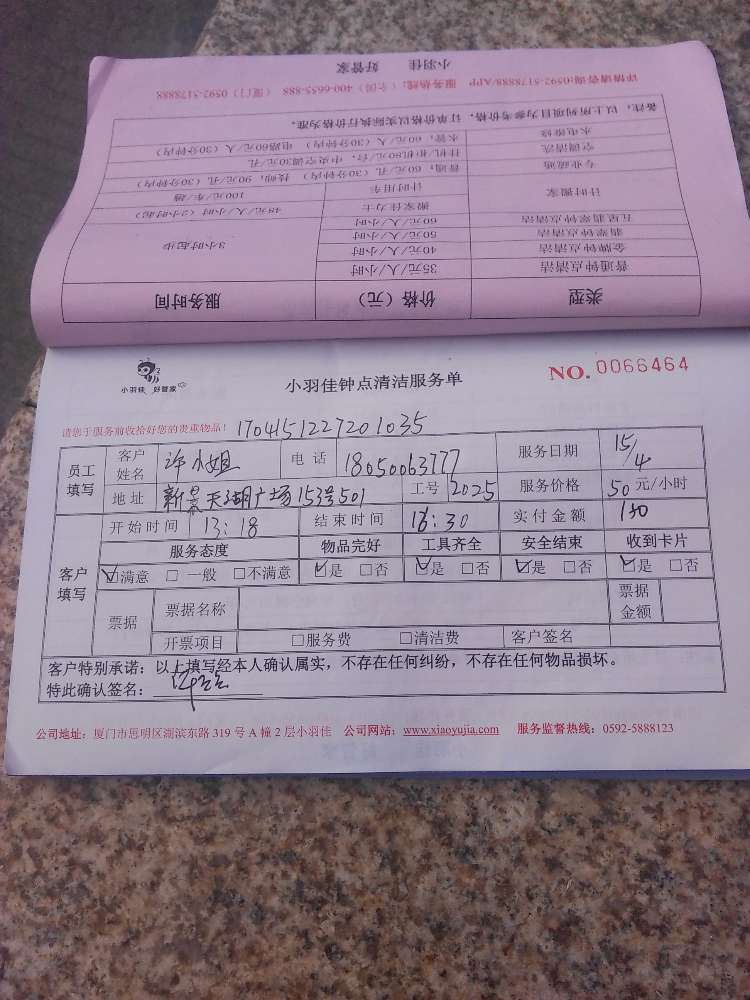 小羽佳 好管家
详情咨询:0592-5178888/APP 服务热线：（全国）400-6655-888 （厦门）0592-5178888
备注：以上所列项目为参考价格，订单价格以实际执行价格为准。
水电维修 水管：60/元/人（30分钟内） 电路60元/人（30分钟内）
空调清洗 挂机/柜机80元/台，中央空调30元/孔
专业疏通 普通：60元/孔（30分钟内） 技师：90元/孔（30分钟内）
计时搬家 计时用车 100元/车/趟
搬家佳力士 48元/人/小时（2小时起）
五星翡翠钟点清洁 60元/人/小时 3小时起步
翡翠钟点清洁 50元/人/小时
金牌钟点清洁 40元/人/小时
普通钟点清洁 35元/人/小时
类型 价格（元） 服务时间
小羽佳 好管家
小羽佳钟点清洁服务单 NO. 0066464
请您于服务前收拾好您的贵重物品！ 1704151227201035
员工填写 客户姓名 许小姐 电话 18050063777 服务日期 15/4
地址 新景天湖广场153号501 工号 2025 服务价格 50元/小时
开始时间 13:18 结束时间 16:30 实付金额
客户填写 服务态度 物品完好 工具齐全 安全结束 收到卡片
☑满意 □一般 □不满意 ☑是 □否 ☑是 □否 ☑是 □否 ☑是 □否
票据 票据名称 票据金额
开票项目 □服务费 □清洁费 客户签名
客户特别承诺：以上填写经本人确认属实，不存在任何纠纷，不存在任何物品损坏。
特此确认签名：
公司地址：厦门市思明区湖滨东路 319 号 A 幢 2 层小羽佳 公司网站：www.xiaoyujia.com 服务监督热线：0592-5888123